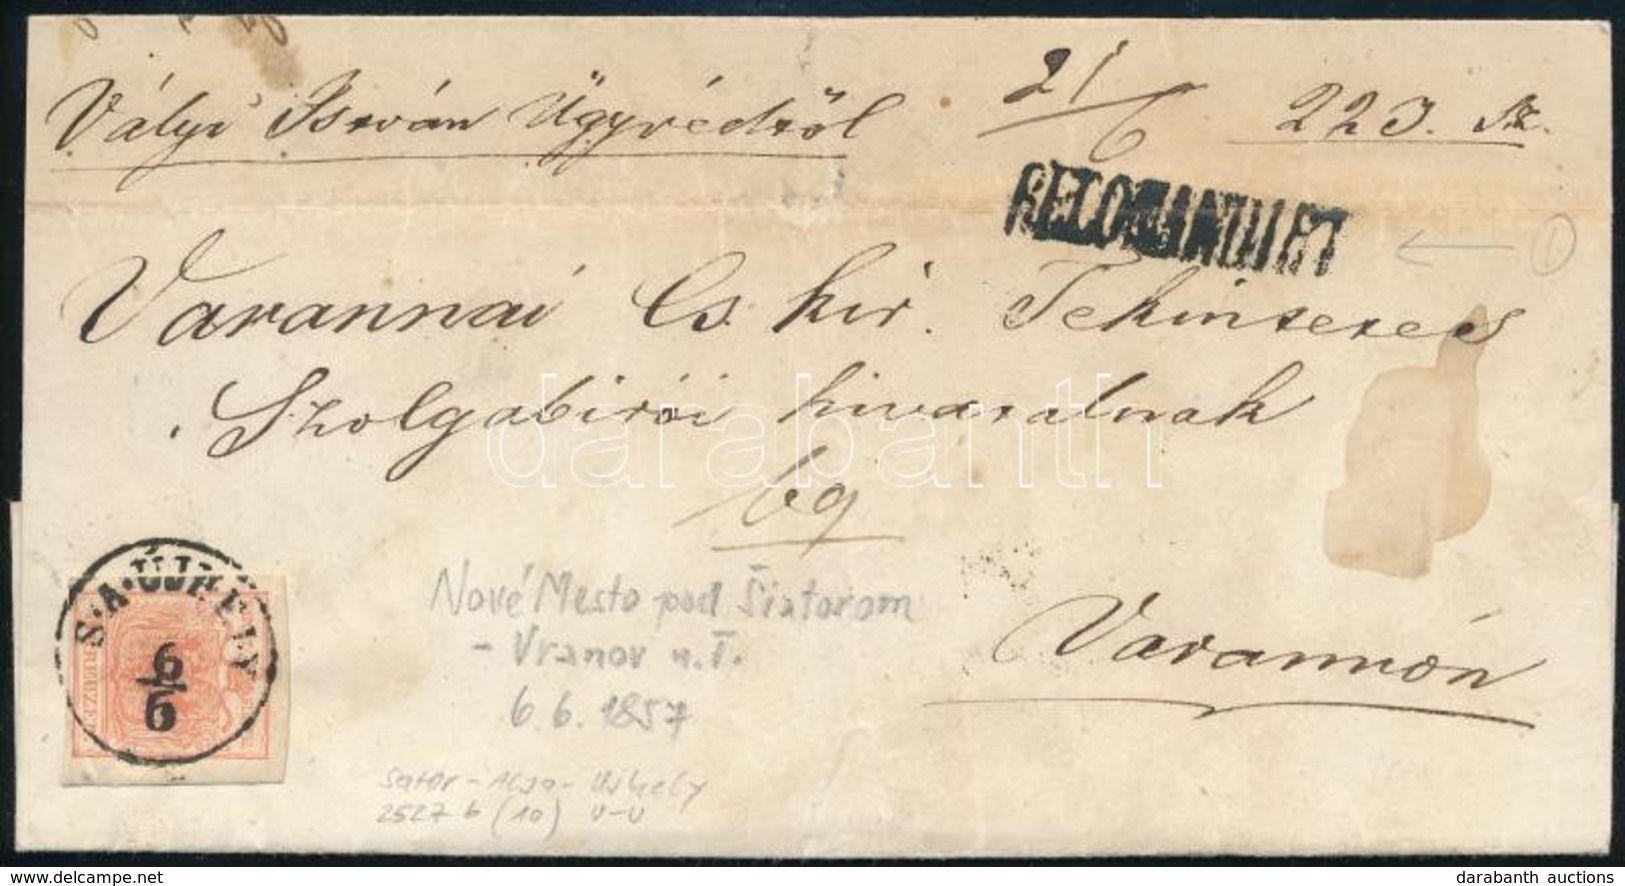 Vályi István Ügyvédtöl 21/6 223. Sz.
RECOMANDIRT
1
Varannai Cs. kir. Tekintetes
Szolgabirói hivatalnak
bg
Varannón
S.A.ÚJHELY
6/6
KREUZER
Nové Mesto pod Šiatorom
- Vranov n.T.
6.6.1857
Sator-Alja-Ujhely
2527 b (10) U-U
darabanth
www.delcampe.net
darabanth auctions